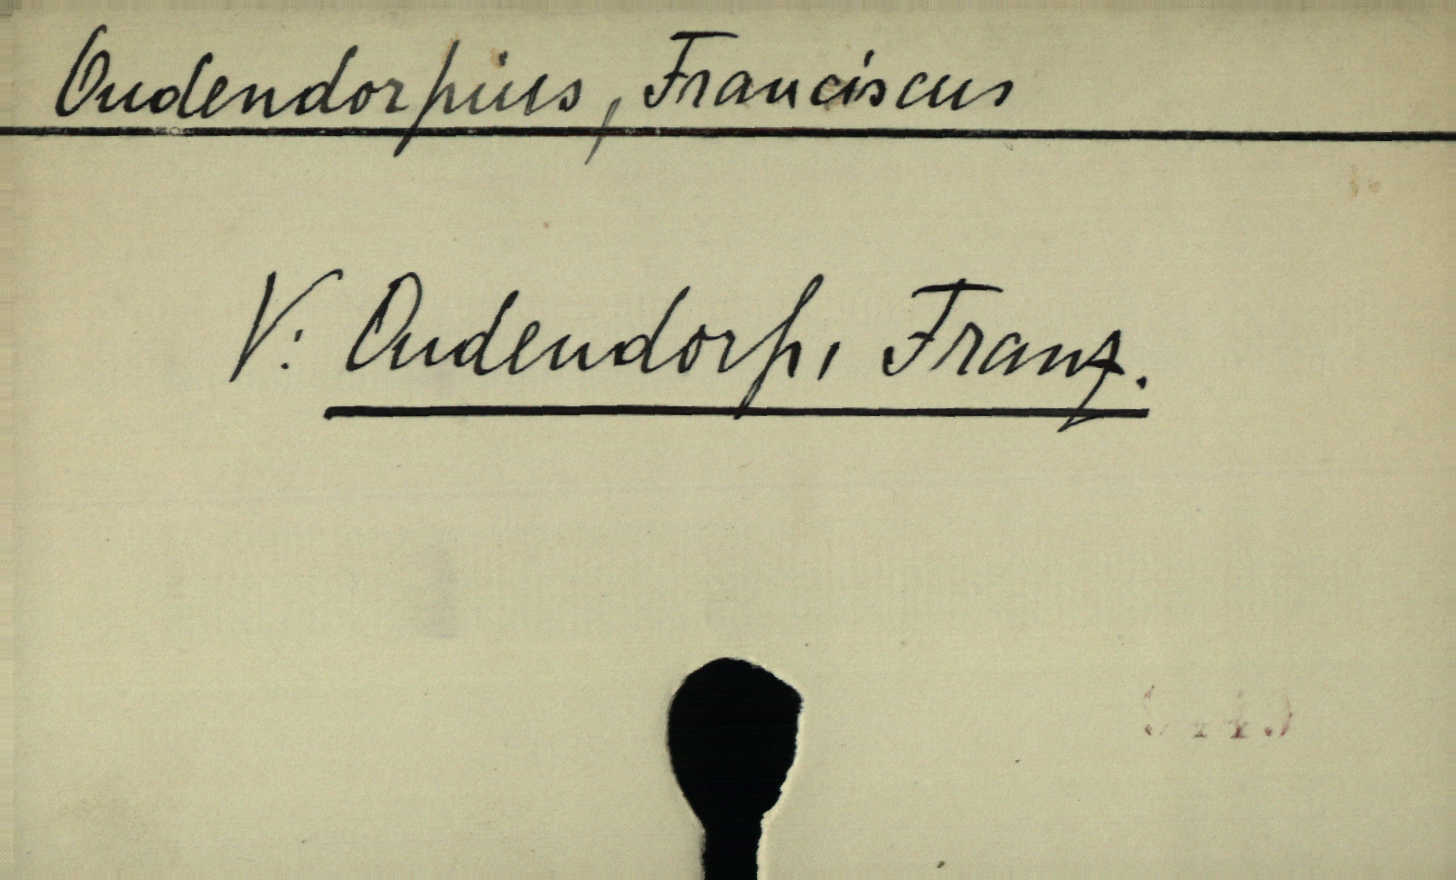 Oudendorpius, Franciscus
V: Oudendorp, Franz.